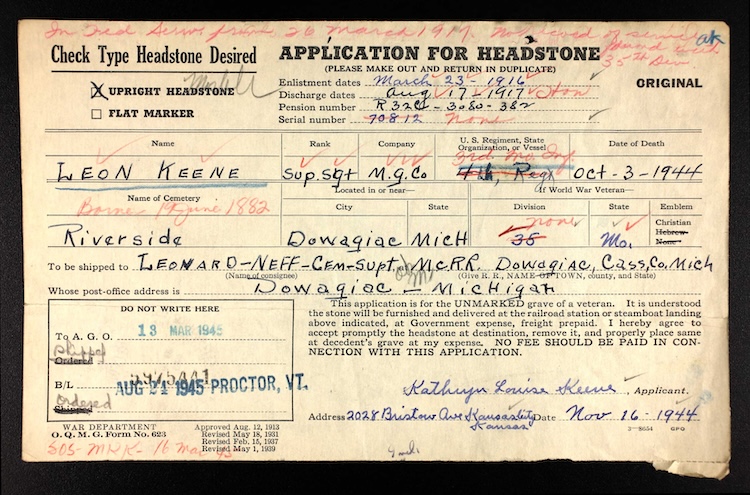 In Fed Serv. from 26 March 1917. No record of service
found with
35th Div
Check Type Headstone Desired
APPLICATION FOR HEADSTONE
(PLEASE MAKE OUT AND RETURN IN DUPLICATE)
X UPRIGHT HEADSTONE
FLAT MARKER
ORIGINAL
Enlistment dates March 23-1916
Discharge dates Aug 17-1917 Hon
Pension number
Serial number 70812 none
Name
Rank
Company
U. S. Regiment, State
Organization, or Vessel
Date of Death
3rd Mo Inf
LEON KEENE Sup. Sgt M.G.Co 4th, Reg Oct-3-1944
Name of Cemetery
Located in or near—
If World War Veteran—
City State Division State Emblem
Borne 14 June 1882
none
Christian
Hebrew
None
Riverside Dowagiac MicH 35 Mo.
To be shipped to LEONARD-NEFF-Cem-Supt- McRR. Dowagiac, Cass, Co. Mich
(Name of consignee) (Give R. R., NAME OF TOWN, county, and State)
Whose post-office address is Dowagiac - MicHigan
DO NOT WRITE HERE
To A. G. O. 13 MAR 1945
Shipped
Ordered
B/L
AUG 21 1945 PROCTOR, VT.
Ordered
Shipped
This application is for the UNMARKED grave of a veteran. It is understood
the stone will be furnished and delivered at the railroad station or steamboat landing
above indicated, at Government expense, freight prepaid. I hereby agree to
accept promptly the headstone at destination, remove it, and properly place same
at decedent's grave at my expense. NO FEE SHOULD BE PAID IN CON-
NECTION WITH THIS APPLICATION.
Kathryn Louise Keene, Applicant.
Address 2028 Bristow Ave Kansas City Date Nov 16-1944
Kansas
WAR DEPARTMENT
O. Q. M. G. Form No. 623
Approved Aug. 12, 1913
Revised May 18, 1931
Revised Feb. 15, 1937
Revised May 1, 1939
2—8654 GPO